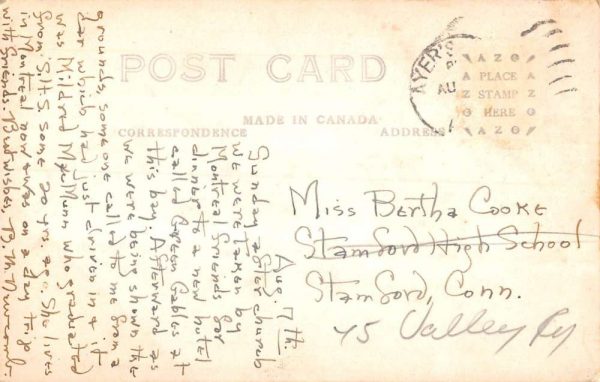 POST CARD
MADE IN CANADA
CORRESPONDENCE
ADDRESS
AYER'S
AU
AZO
PLACE
STAMP
HERE
AZO
Miss Bertha Cooke
Stamford High School
Stamford, Conn.
45 Valley
Aug. 17th.
Sunday after church
we were taken by
Montreal friends for
dinner to a new hotel
called Green Gables at
this bay. Afterward as
we were being shown the
grounds, someone called to me from a
car which had just driven in &
was Mildred who graduated
from S.H.S. some 20 yrs. ago. She lives
in Montreal now & was on a day trip
with friends. Best wishes, B. M.